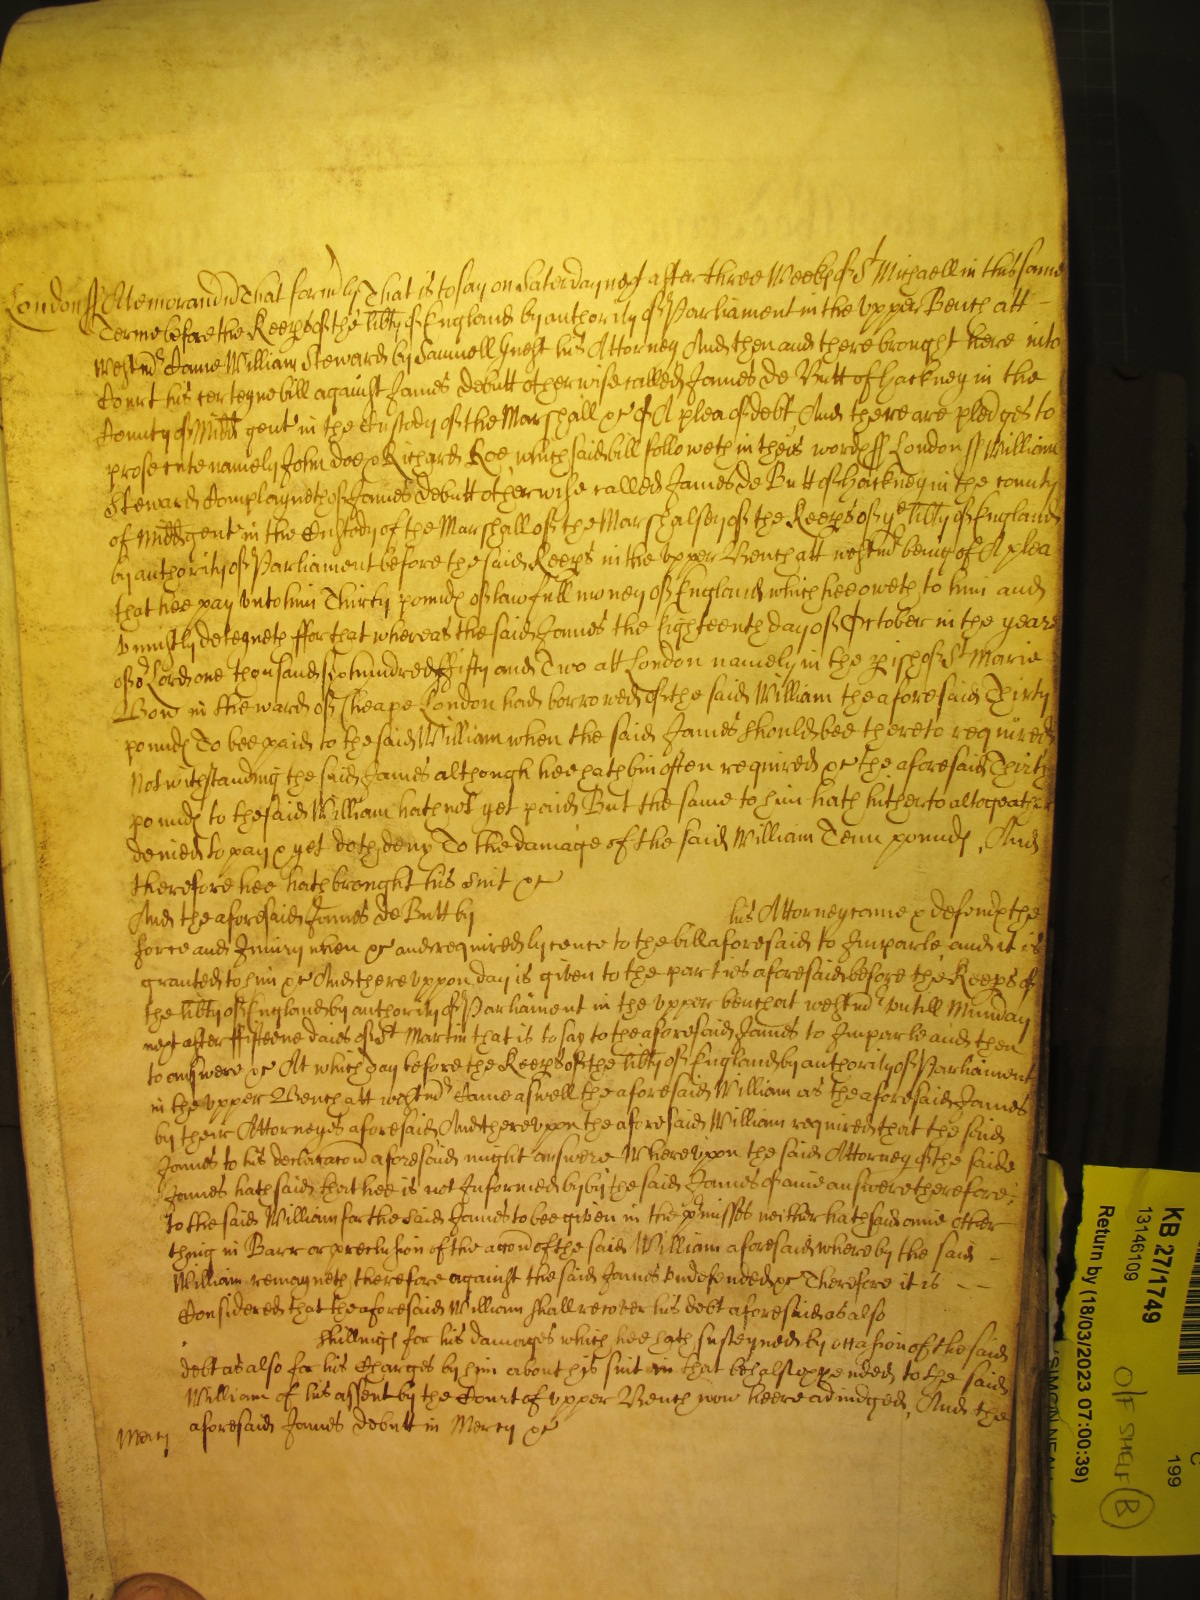 London ss Memorandm That formly That is to say on Saterday next after three Weeks of St Michaell in this same
Terme before the Keeps of the libty of England by authority of Parliament in the Upper Bench att
Westmr Came William Steward by Samuell his Attorney And then and there brought here into
Court his certeyne bill against James debutt otherwise called James de Butt of Hackney in the
County of Midds gent in the Custody of the Marshall &c of A plea of debt, And there are pledges to
prosecute namely John doe & Richard Roe, which said bill followeth in theis words ss London ss William
Steward Complayneth of James debutt otherwise called James de Butt of Hackney in the county
of Midds gent in the Custody of the Marshall of the Marshalsey of the Keeps of ye libty of England
by authority of Parliament before the said Keeps in the upper Bench att westmr being of A plea
that hee pay unto him Thirty pounds of lawfull money of England which hee oweth to him and
uniustly deteyneth ffor that whereas the said James the Eighteenth day of October in the yeare
of or Lord one thousand six hundred ffifty and Two att London namely in the pish of St Marie
Bow in the ward of Cheape London had borrowed of the said William the aforesaid Thirty
pounds To bee paid to the said William when the said James should bee thereto required
Notwithstanding the said James although hee hath bin often required &c the aforesaid Thirty
pounds to the said William hath not yet paid But the same to him hath hitherto altogeather
denied to pay & yet doth deny To the damage of the said William Tenn pounds, And
therefore hee hath brought his suit &c
And the aforesaid James de Butt by his Attorney came & defend the
force and Iniury when &c and required lycence to the bill aforesaid to Imparle, and it is
granted to him &c And thereuppon day is given to the parties aforesaid before the Keeps of
the libty of England by authority of Parliament in the upper bench at westmr untill Munday
next after ffifteene daies of St Martin that is to say to the aforesaid James to Imparle and then
to answere &c At which day before the Keeps of the libty of England by authority of Parliament
in the upper Bench att westmr Came aswell the aforesaid William as the aforesaid James
by their Attorneyes aforesaid And thereupon the aforesaid William required that the said
James to his declaracon aforesaid might answere Whereupon the said Attorney of the saide
James hath said that hee is not Informed by by the said James of anie answere therefore
to the said William for the said James to bee given in the pmisses neither hath said anie other
thing in Barr or preclusion of the accon of the said William aforesaid whereby the said
William remayneth therefore against the said James undefended &c Therefore it is
Considered that the aforesaid William shall recover his debt aforesaid as also
shillings for his damages which hee hath susteyned by occasion of the said
debt as also for his Charges by him about his suit in that behalf expended to the said
William of his assent by the Court of upper Bench now heere adiudged, And the
aforesaid James debutt in Mercy &c
Mercy
KB 27/1749
13146109
Return by (18/03/2023 07:00:39)
O/F SHELF B
199
C
SIMON NEAL